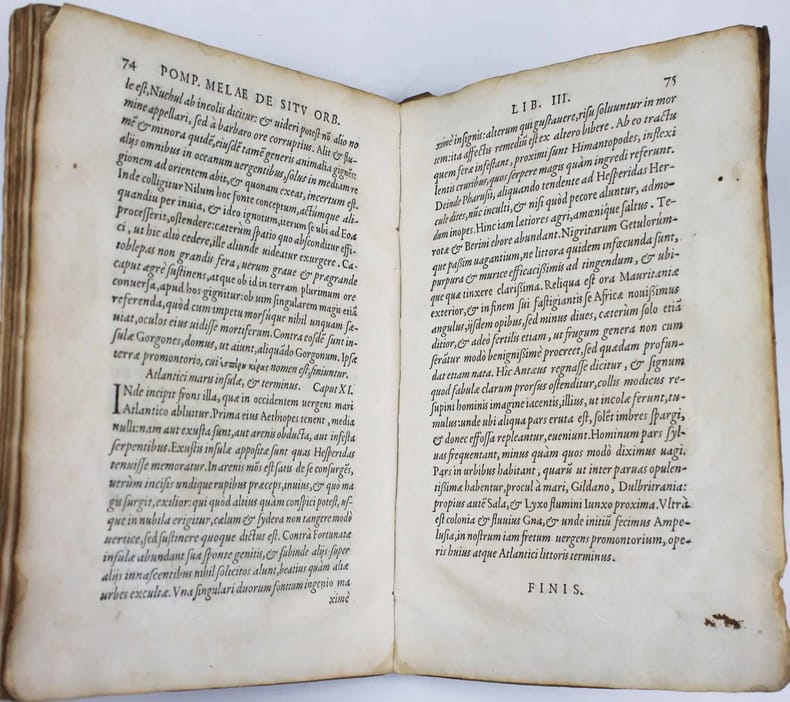 74 POMP. MELAE DE SITV ORB.
le est, Nuchul ab incolis dicitur: & uideri potest nõ alio no
mine appellari, sed à barbaro ore corruptius. Alit & flu-
mẽ & minora quidẽ, eiusdẽ tamẽ generis animalia gignit:
alijs omnibus in oceanum uergentibus, solus in mediam re
gionem ad orientem abit, & quonam exeat, incertum est.
Inde colligitur Nilum hoc fonte conceptum, actũmque ali-
quandiu per inuia, & ideo ignotum, iterum se ubi ad Eoa
processerit, ostendere: cæterum spatio quo absconditur effi-
ci, ut hic aliò cedere, ille aliunde uideatur exurgere. Ca-
toblepas non grandis fera, uerum graue & prægrande
caput ægrè sustinens, atque ob id in terram plurimum ore
conuersa, apud hos gignitur: ob uim singularem magis etiã
referenda, quòd cum impetu morsuque nihil unquam sæ-
uiat, oculos eius uidisse mortiferum. Contra eosdẽ sunt in-
sulæ Gorgones, domus, ut aiunt, aliquãdo Gorgonum. Ipsæ
terræ promontorio, cui ἑσπέρου κέρας nomen est, finiuntur.
Atlantici maris insulæ, & terminus. Caput XI.
INde incipit frons illa, quæ in occidentem uergens mari
Atlantico abluitur. Prima eius Aethiopes tenent, media
nulli: nam aut exusta sunt, aut arenis obducta, aut infesta
serpentibus. Exustis insulæ appositæ sunt quas Hesperidas
tenuisse memoratur. In arenis mõs est satis de se consurgẽs,
uerùm incisis undique rupibus præceps, inuius, & quo ma
gis surgit, exilior: qui quòd altius quàm conspici potest, us-
que in nubila erigitur, cælum & sydera non tangere modò
uertice, sed sustinere quoque dictus est. Contrà Fortunatæ
insulæ abundant sua sponte genitis, & subinde alijs super
alijs innascentibus nihil solicitos alunt, beatius quàm aliæ
urbes excultæ. Vna singulari duorum fontium ingenio ma
ximè
LIB. III. 75
ximè insignis: alterum qui gustauere, risu soluuntur in mor
tem: ita affectis remediũ est ex altero bibere. Ab eo tractu
quem feræ infestant, proximi sunt Himantopodes, inflexi
lentis cruribus, quos serpere magis quàm ingredi referunt.
Deinde Pharusij, aliquando tendente ad Hesperidas Her-
cule dites, nũc inculti, & nisi quòd pecore aluntur, admo-
dum inopes. Hinc iam lætiores agri, amœnique saltus. Te-
rotæ & Berini ebore abundant. Nigritarum Getulorum-
que passim uagantium, ne littora quidem infæcunda sunt,
purpura & murice efficacissimis ad tingendum, & ubi-
que quæ tinxere clarissima. Reliqua est ora Mauritaniæ
exterior, & in finem sui fastigiantis se Africæ nouissimus
angulus, ijsdem opibus, sed minus diues, cæterum solo etiã
ditior, & adeò fertilis etiam, ut frugum genera non cum
serãtur modò benignissimè procreet, sed quædam profun-
dat etiam nata. Hic Antæus regnasse dicitur, & signum
quod fabulæ clarum prorsus ostenditur, collis modicus re-
supini hominis imagine iacentis, illius, ut incolæ ferunt, tu-
mulus: unde ubi aliqua pars eruta est, solẽt imbres spargi,
& donec effossa repleantur, eueniunt. Hominum pars syl-
uas frequentant, minus quàm quos modò diximus uagi.
Pars in urbibus habitant, quarũ ut inter paruas opulen-
tissimæ habentur, procul à mari, Gildano, Dulbritrania:
propius autẽ Sala, & Lyxo flumini Iunxo proxima. Vltrà
est colonia & fluuius Gna, & unde initiũ fecimus Ampe-
lusia, in nostrum iam fretum uergens promontorium, ope-
ris huius atque Atlantici littoris terminus.
FINIS.